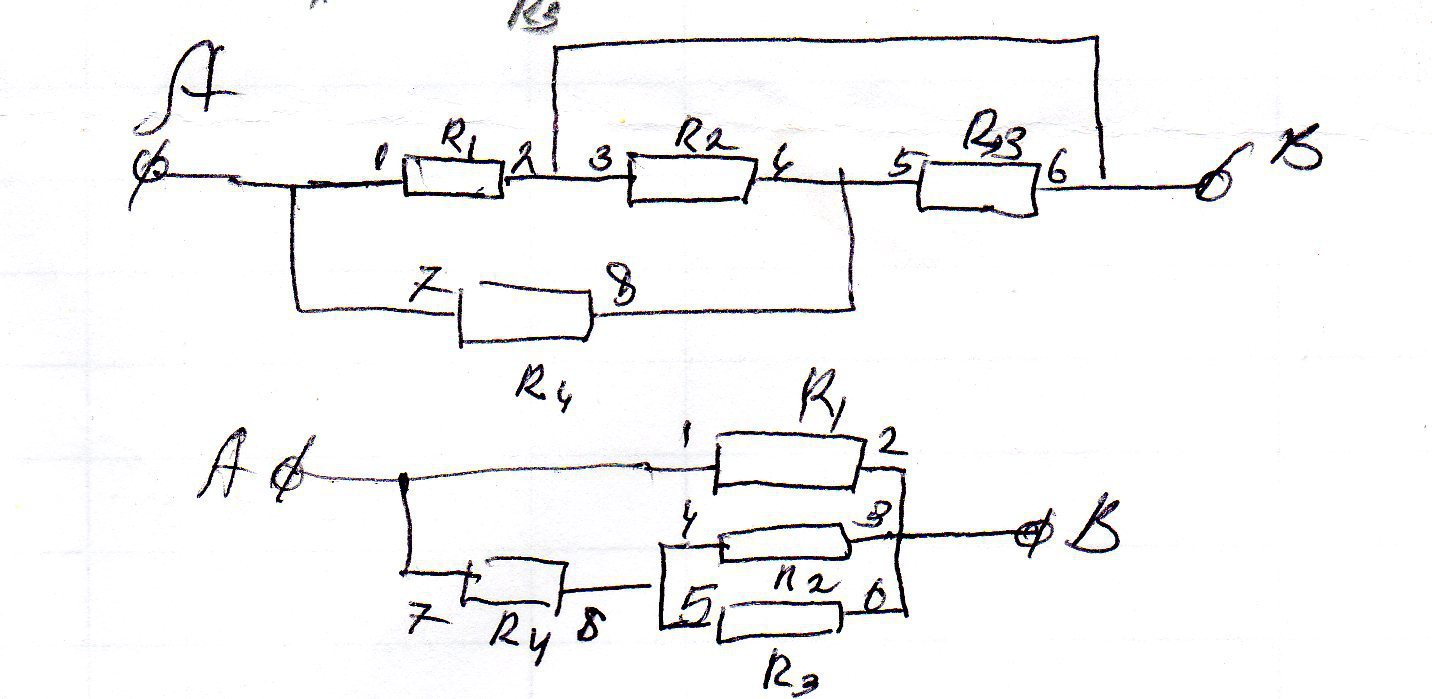 R3
A
R1 R2 R3
1 2 3 4 5 6 B
7 8
R4
R1
A 1 2
4 3 B
R2
5 6
7 R4 8
R3